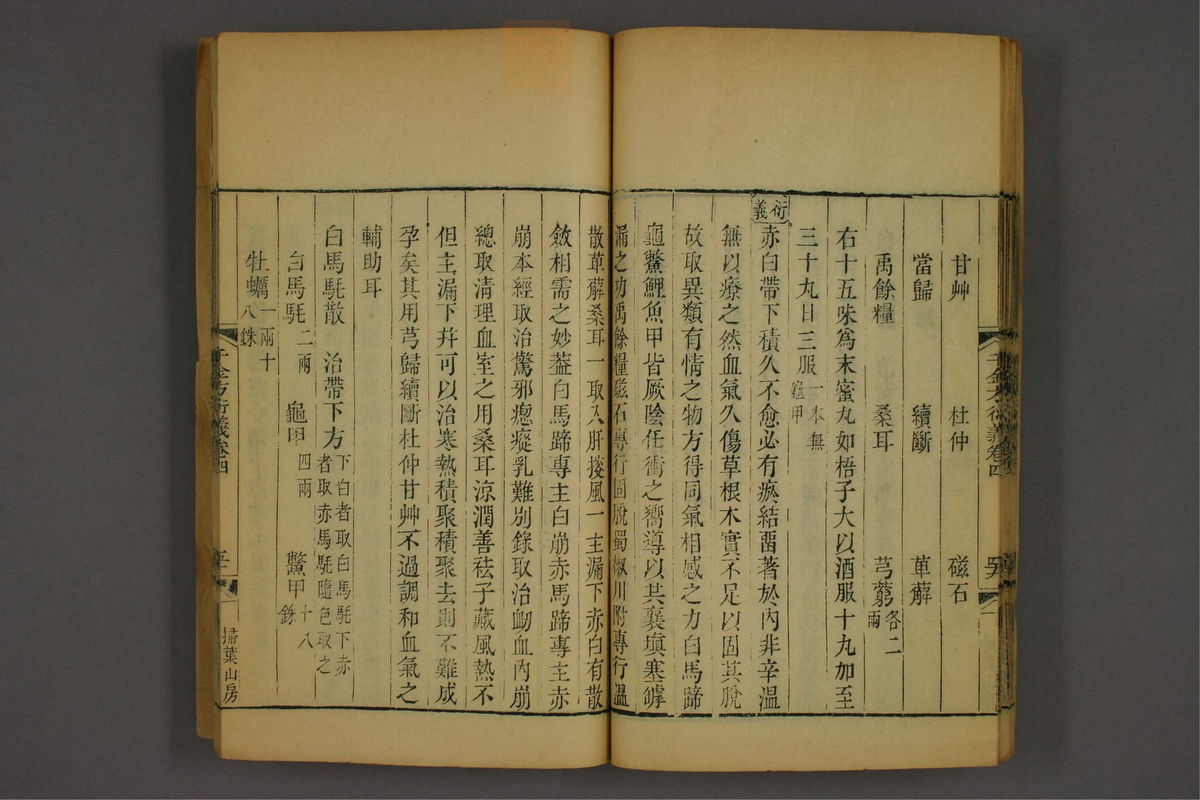 甘艸 杜仲 磁石
當歸 續斷 萆薢
禹餘糧 桑耳 芎藭各二兩
右十五味爲末蜜丸如梧子大以酒服十丸加至
三十丸日三服一本無龜甲
衍義
赤白帶下積久不愈必有瘀結畱著於內非辛溫
無以療之然血氣久傷草根木實不足以固其脫
故取異類有情之物方得同氣相感之力白馬蹄
龜鱉鯉魚甲皆厥陰任衝之嚮導以其襄塡塞罅
漏之功禹餘糧磁石專行固脫蜀椒川附專行溫
散萆薢桑耳一取入肝搜風一主漏下赤白有散
斂相需之妙葢白馬蹄專主白崩赤馬蹄專主赤
崩本經取治驚邪瘛瘲乳難別錄取治衂血內崩
總取清理血室之用桑耳涼潤善祛子藏風熱不
但主漏下幷可以治寒熱積聚積聚去則不難成
孕矣其用芎歸續斷杜仲甘艸不過調和血氣之
輔助耳
白馬䭷散 治帶下方下白者取白馬䭷下赤者取赤馬䭷隨色取之
白馬䭷二兩 龜甲四兩 鱉甲十八銖
牡蠣一兩十八銖
千金方衍義卷四
掃葉山房
千金方衍義卷四